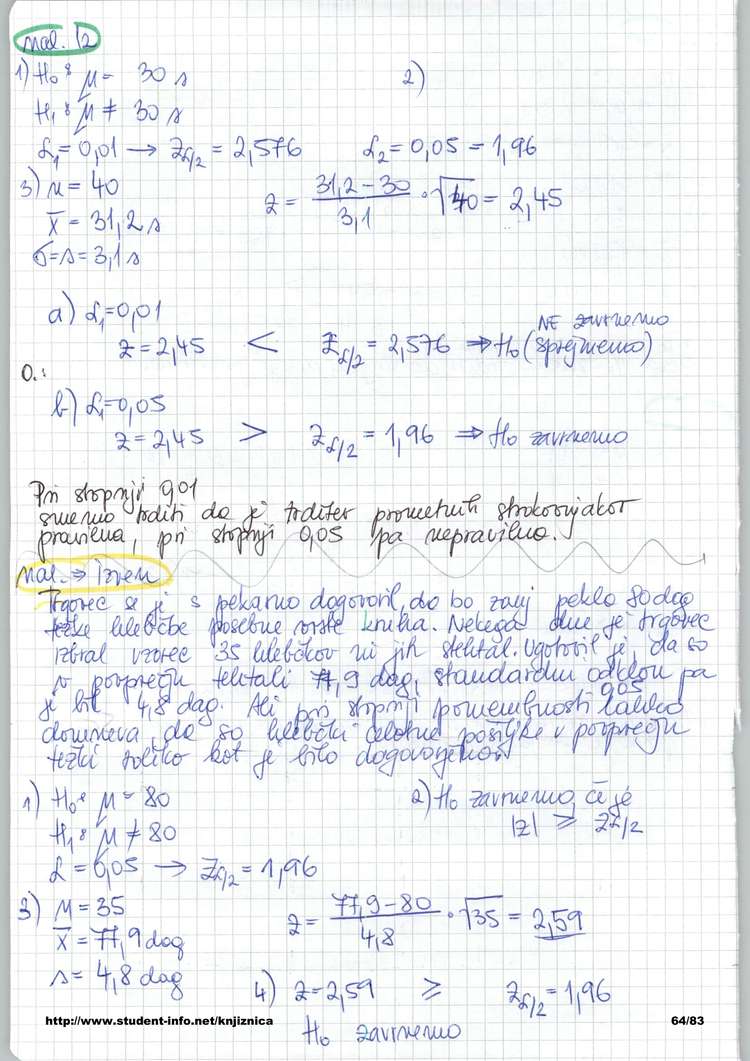 nal. 12
1) H₀: μ = 30 s 2)
H₁: μ ≠ 30 s
α₁ = 0,01 → z_α/2 = 2,576 α₂ = 0,05 = 1,96
3) n = 40 z = (31,2 - 30)/3,1 · √40 = 2,45
x̄ = 31,2 s
σ = s = 3,1 s
a) α₁ = 0,01
z = 2,45 < z_α/2 = 2,576 ⇒ H₀ (NE zavrnemo
sprejmemo)
O.:
b) α₁ = 0,05
z = 2,45 > z_α/2 = 1,96 ⇒ H₀ zavrnemo
Pri stopnji 0,01
smemo trditi da je trditev prometnih strokovnjakov
pravilna, pri stopnji 0,05 pa nepravilna.
nal. ⇒ izven
Trgovec se je s pekarno dogovoril, da bo zanj pekla 80 dag
težke hlebčke posebne vrste kruha. Nekega dne je trgovec
izbral vzorec 35 hlebčkov in jih stehtal. Ugotovil je, da so
v povprečju tehtali 77,9 dag, standardni odklon pa
je bil 4,8 dag. Ali pri stopnji pomembnosti 0,05 lahko
domneva, da so hlebčki celotne pošiljke v povprečju
težki toliko kot je bilo dogovorjeno.
1) H₀: μ = 80 2) H₀ zavrnemo, če je
H₁: μ ≠ 80 |z| ≥ z_α/2
α = 0,05 → z_α/2 = 1,96
3) n = 35 z = (77,9 - 80)/4,8 · √35 = 2,59
x̄ = 77,9 dag
s = 4,8 dag
4) z = 2,59 ≥ z_α/2 = 1,96
H₀ zavrnemo
http://www.student-info.net/knjiznica 64/83